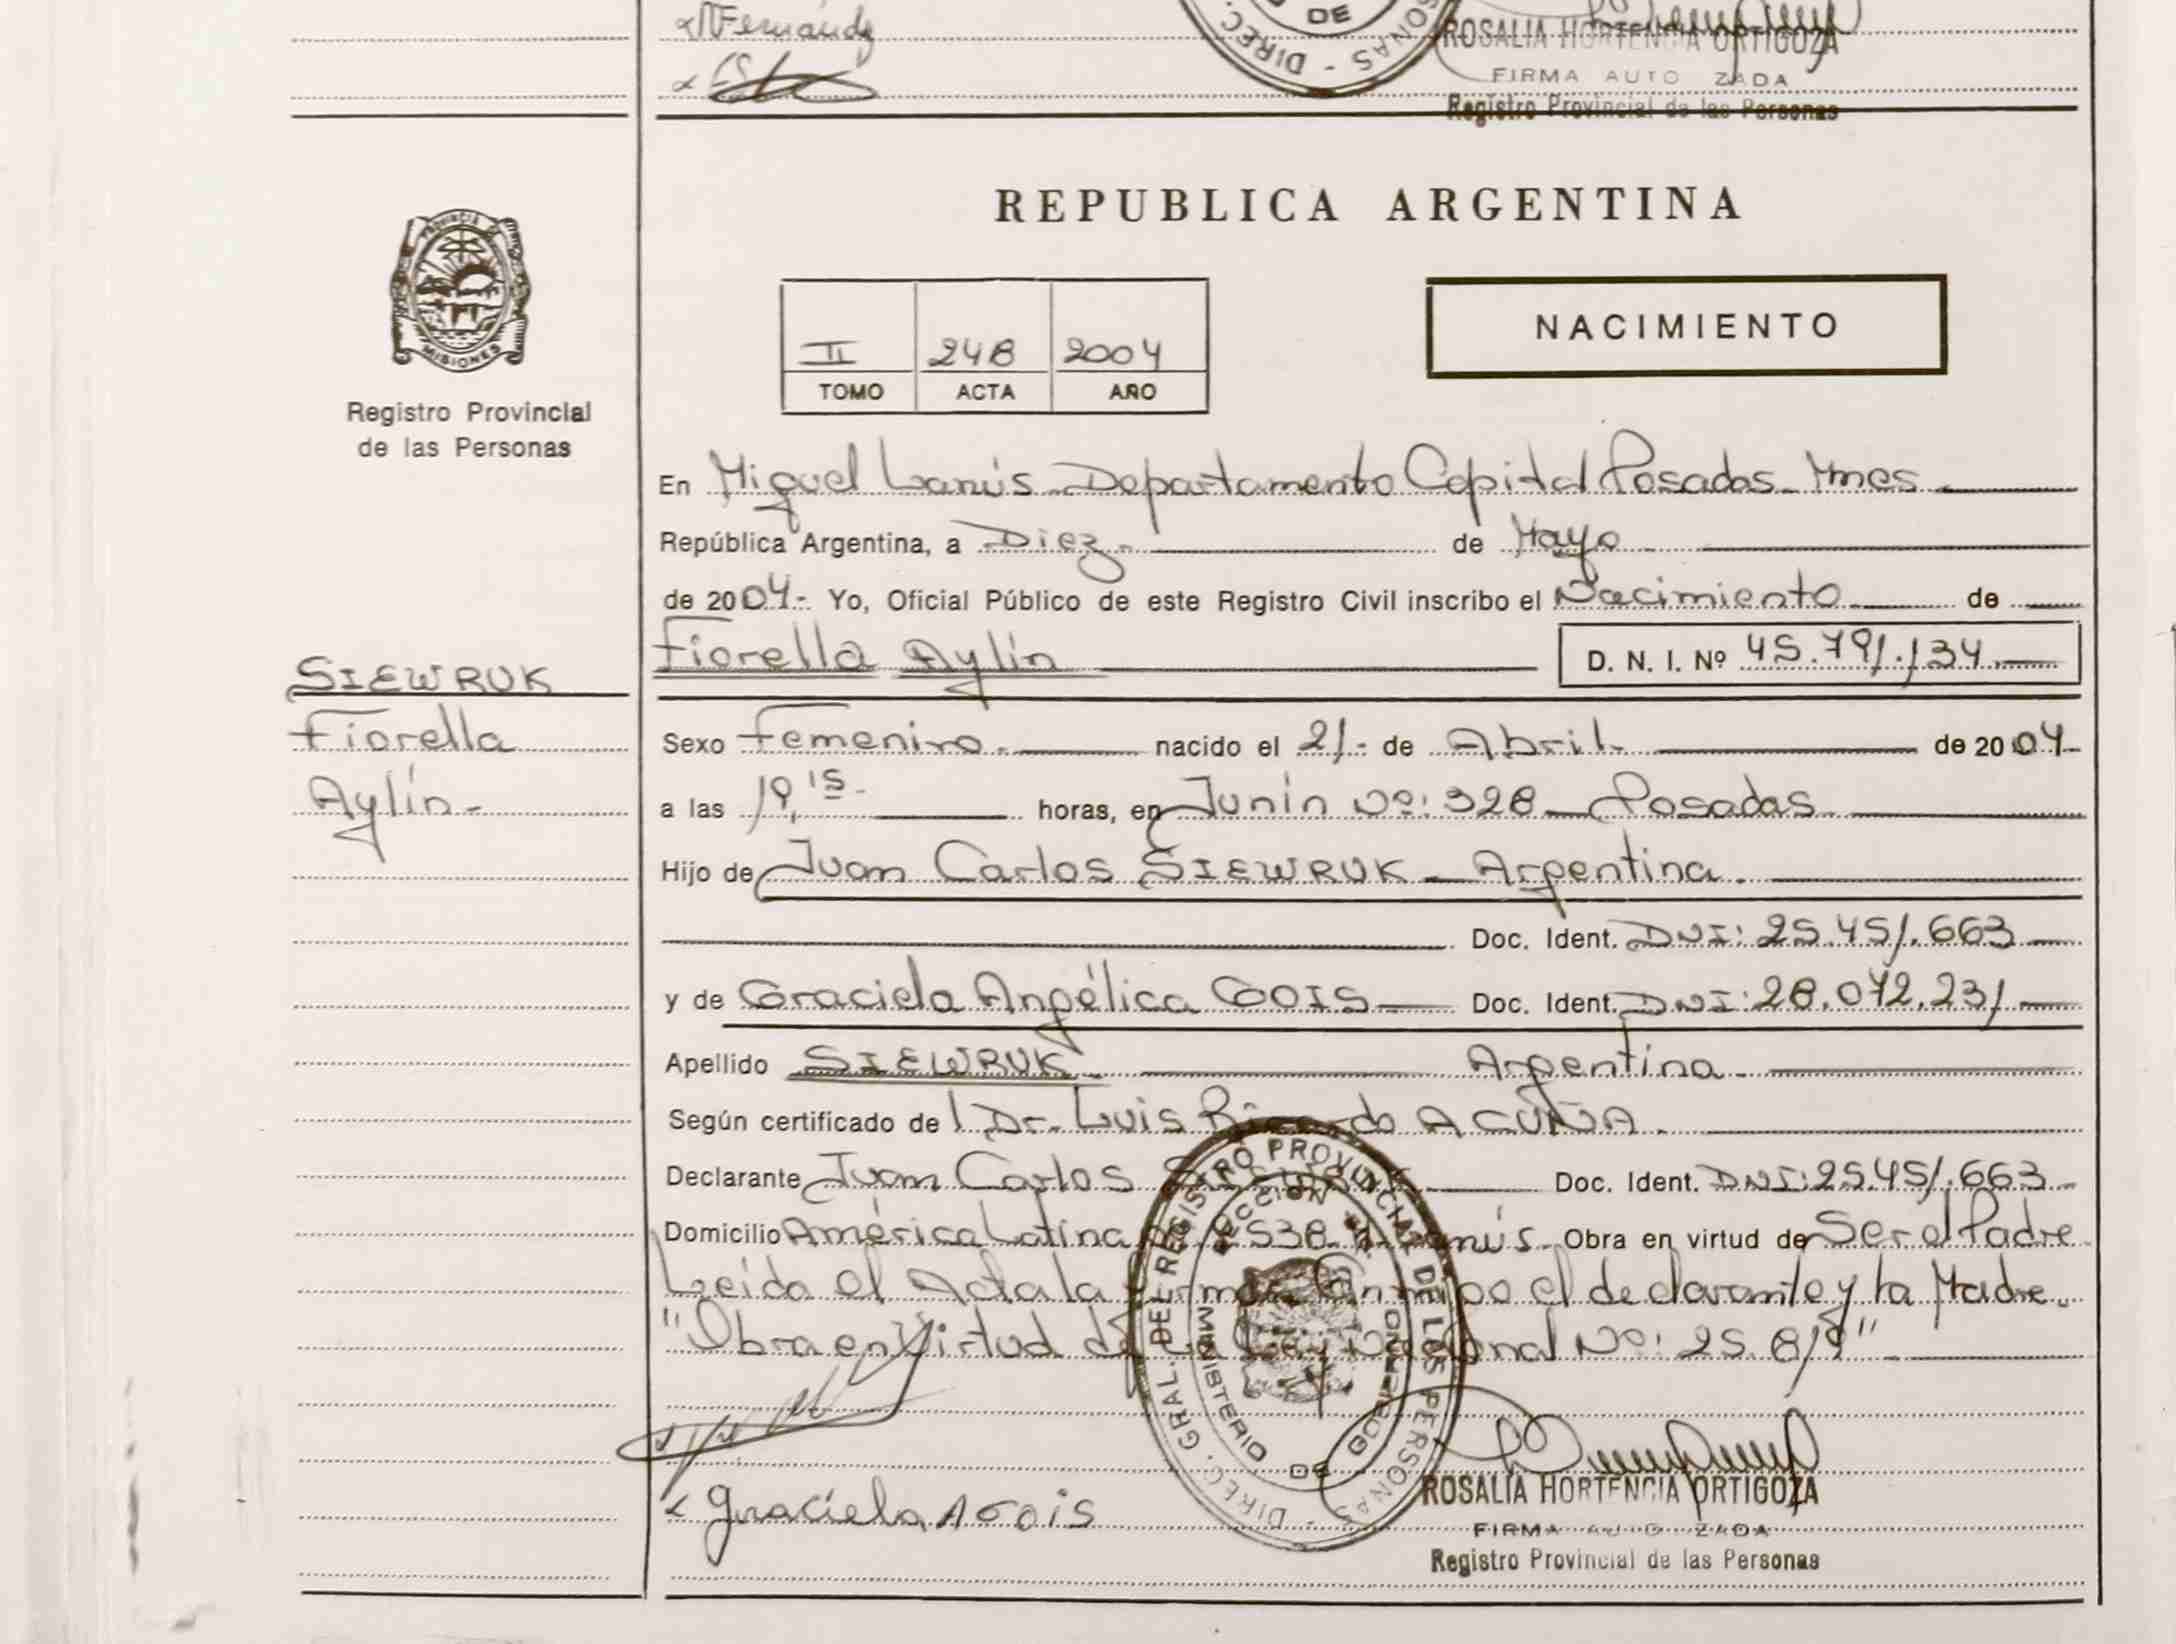 Fernández
DIREC. DE PERSONAS -
ROSALIA HORTENCIA ORTIGOZA
FIRMA AUTO ZADA
Registro Provincial de las Personas
REPUBLICA ARGENTINA
PROVINCIA DE MISIONES
Registro Provincial
de las Personas
II 248 2004
TOMO ACTA AÑO
NACIMIENTO
En Miguel Lanús Departamento Capital Posadas Mnes
República Argentina, a Diez.- de Mayo
de 2004.- Yo, Oficial Público de este Registro Civil inscribo el Nacimiento de
Fiorella Aylín D. N. I. Nº 45.791.134
SIEWRUK
Fiorella
Aylín.-
Sexo Femenino. nacido el 21.- de Abril. de 2004
a las 19,15.- horas, en Junín Nº: 328 Posadas
Hijo de Juan Carlos SIEWRUK Argentina.
Doc. Ident. DNI: 25.451.663
y de Graciela Angélica GOIS Doc. Ident. DNI: 28.072.231
Apellido SIEWRUK Argentina.
Según certificado de l Dr. Luis Ricardo ACUÑA.
Declarante Juan Carlos SIEWRUK Doc. Ident. DNI: 25.451.663
Domicilio América Latina 2538 Lanús Obra en virtud de Ser el Padre
Leída el Acta la firman conmigo el declarante y la Madre.
"Obra en Virtud de la Ley Nacional Nº: 25.819"
DIREC. GRAL. DEL REGISTRO PROVINCIAL DE LAS PERSONAS -
MINISTERIO DE GOBIERNO
Graciela A Gois
ROSALIA HORTENCIA ORTIGOZA
FIRMA AUTO ZADA
Registro Provincial de las Personas